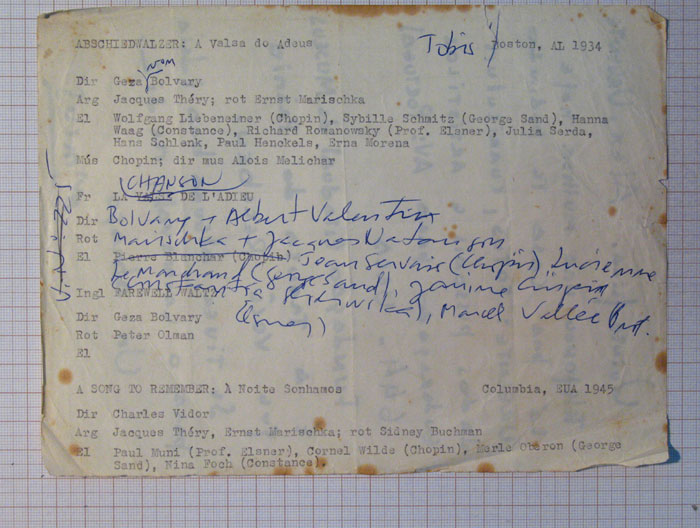 ABSCHIEDWALZER: A Valsa do Adeus Tobis / Boston, AL 1934
VON
Dir Geza Bolvary
Arg Jacques Théry; rot Ernst Marischka
El Wolfgang Liebeneiner (Chopin), Sybille Schmitz (George Sand), Hanna
Waag (Constance), Richard Romanowsky (Prof. Elsner), Julia Serda,
Hans Schlenk, Paul Henckels, Erna Morena
Mús Chopin; dir mus Alois Melichar
CHANSON
Fr LA VALSE DE L'ADIEU
Dir Bolvary + Albert Valentin
Rot Marischka + Jacques Natanson
El Pierre Blanchar (Chopin) Jean Servais (Chopin) Lucienne
Le Marchand (George Sand), Janine Crispin
Ingl FAREWELL WALTZ
(Constantia), Marcel Vallée Prof.
Dir Geza Bolvary
(Elsner)
Rot Peter Olman
El
A SONG TO REMEMBER: À Noite Sonhamos Columbia, EUA 1945
Dir Charles Vidor
Arg Jacques Théry, Ernst Marischka; rot Sidney Buchman
El Paul Muni (Prof. Elsner), Cornel Wilde (Chopin), Merle Oberon (George
Sand), Nina Foch (Constance).